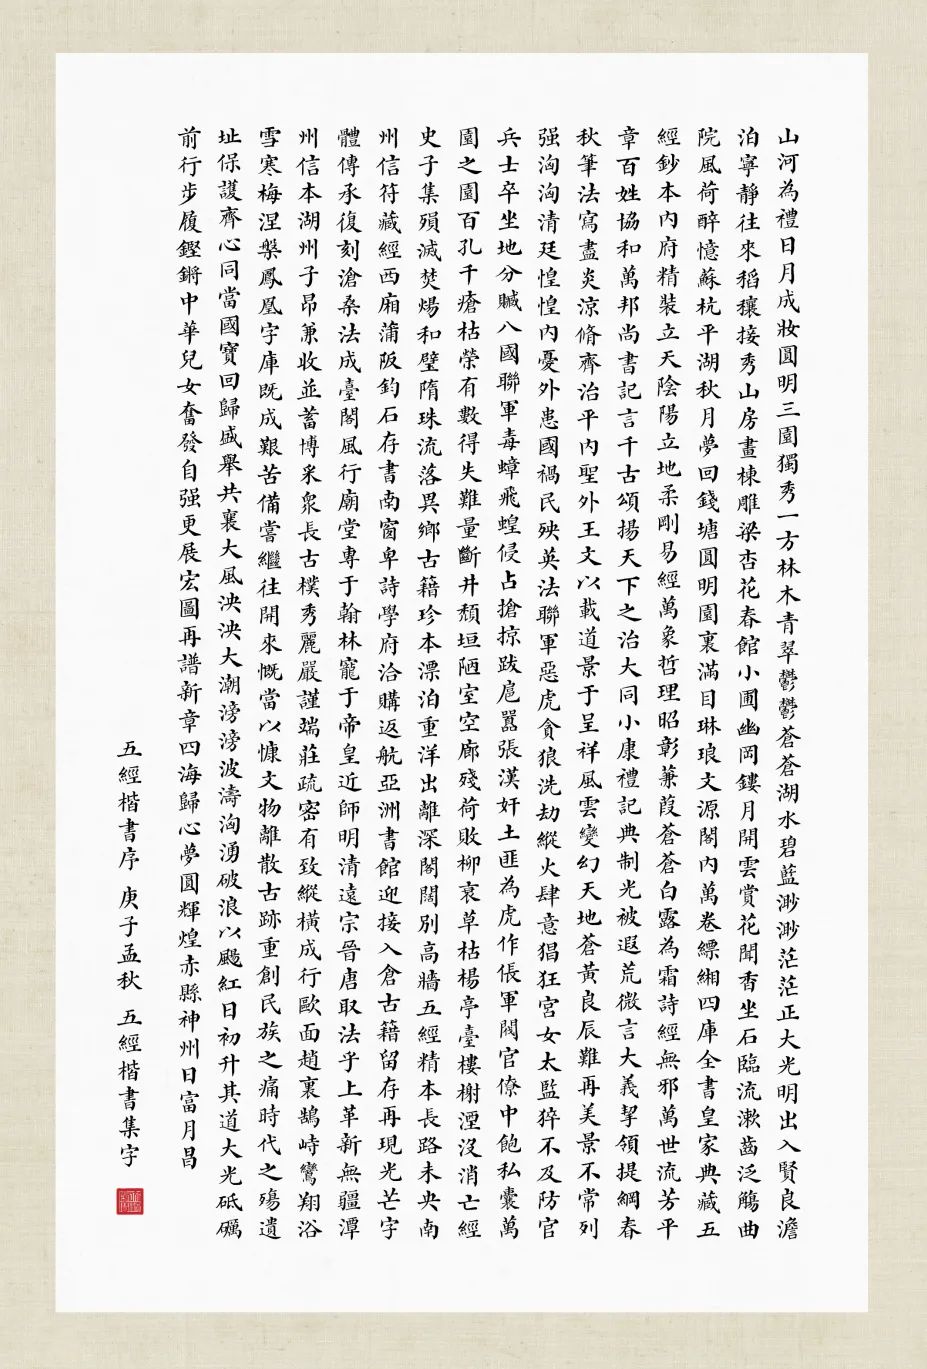 山河為禮日月成妝圓明三園獨秀一方林木青翠鬱鬱蒼蒼湖水碧藍渺渺茫茫正大光明出入賢良澹
泊寧靜往來稻穰接秀山房畫棟雕梁杏花春館小圃幽岡鏤月開雲賞花聞香坐石臨流漱齒泛觴曲
院風荷醉憶蘇杭平湖秋月夢回錢塘圓明園裏滿目琳琅文源閣內萬卷縹緗四庫全書皇家典藏五
經鈔本內府精裝立天陰陽立地柔剛易經萬象哲理昭彰蒹葭蒼蒼白露為霜詩經無邪萬世流芳平
章百姓協和萬邦尚書記言千古頌揚天下之治大同小康禮記典制光被遐荒微言大義挈領提綱春
秋筆法寫盡炎涼脩齊治平內聖外王文以載道景于呈祥風雲變幻天地蒼黃良辰難再美景不常列
强洶洶清廷惶惶內憂外患國禍民殃英法聯軍惡虎貪狼洗劫縱火肆意猖狂宮女太監猝不及防官
兵士卒坐地分贓八國聯軍毒蟑飛蝗侵占搶掠跋扈囂張漢奸土匪為虎作倀軍閥官僚中飽私囊萬
園之園百孔千瘡枯榮有數得失難量斷井頹垣陋室空廊殘荷敗柳衰草枯楊亭臺樓榭湮沒消亡經
史子集殞滅焚煬和璧隋珠流落異鄉古籍珍本漂泊重洋出離深閣闊別高牆五經精本長路未央南
州信符藏經西廂蒲阪鈞石存書南窗卑詩學府洽購返航亞洲書館迎接入倉古籍留存再現光芒字
體傳承復刻滄桑法成臺閣風行廟堂專于翰林寵于帝皇近師明清遠宗晉唐取法乎上革新無疆潭
州信本湖州子昂兼收並蓄博采衆長古樸秀麗嚴謹端莊疏密有致縱橫成行歐面趙裏鵠峙鸞翔浴
雪寒梅涅槃鳳凰字庫既成艱苦備嘗繼往開來慨當以慷文物離散古跡重創民族之痛時代之殤遺
址保護齊心同當國寶回歸盛舉共襄大風泱泱大潮滂滂波濤洶湧破浪以颺紅日初升其道大光砥礪
前行步履鏗鏘中華兒女奮發自强更展宏圖再譜新章四海歸心夢圓輝煌赤縣神州日富月昌
五經楷書序 庚子孟秋 五經楷書集字